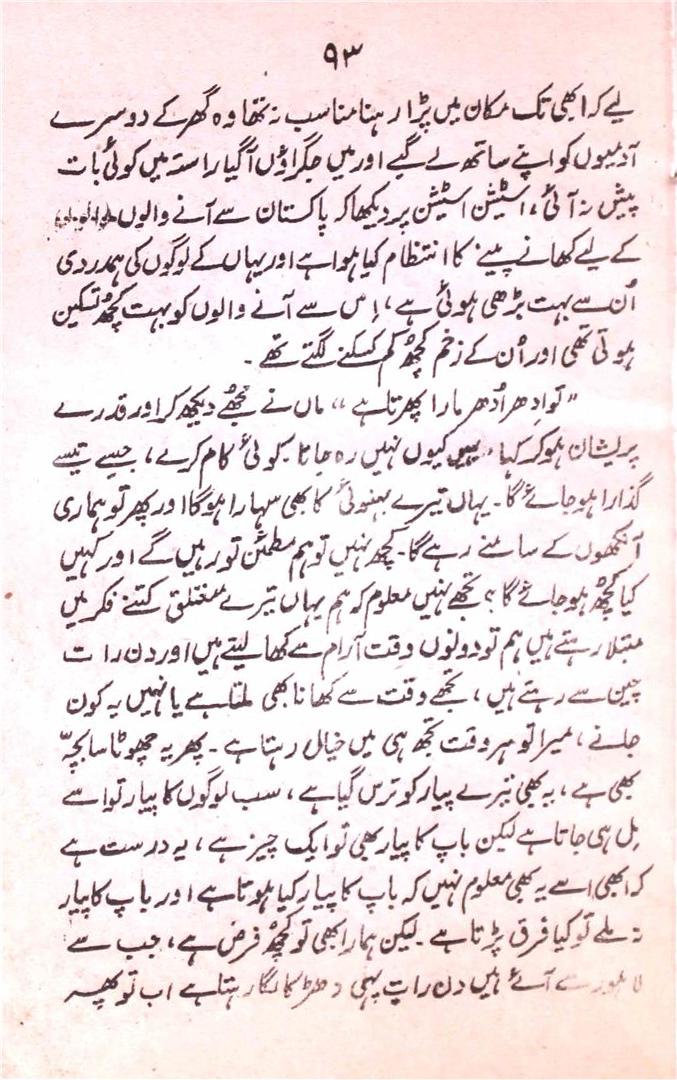 ۹۳
لیے کہ ابھی تک مکان میں پڑا رہنا مناسب نہ تھا وہ گھر کے دوسرے
آدمیوں کو اپنے ساتھ لے گیے اور میں جگراؤں آگیا راستہ میں کوئی بات
پیش نہ آئی، اسٹیشن اسٹیشن پر دیکھا کہ پاکستان سے آنے والوں
کے لیے کھانے پینے کا انتظام کیا ہوا ہے اور یہاں کے لوگوں کی ہمدردی
اُن سے بہت بڑھی ہوئی ہے، اِس سے آنے والوں کو بہت کچھ تسکین
ہوتی تھی اور اُن کے زخم کچھ کم کسکنے لگتے تھے۔
"تو اِدھر اُدھر مارا پھرتا ہے" ماں نے مجھے دیکھ کر اور قدرے
پریشان ہوکر کہا "یہیں کیوں نہیں رہ جاتا۔ کوئی کام کرلے، جیسے تیسے
گذارا ہو جائے گا۔ یہاں تیرے بہنوئی کا بھی سہارا ہوگا اور پھر تو ہماری
آنکھوں کے سامنے رہے گا۔ کچھ نہیں تو ہم مطمئن تو رہیں گے اور کہیں
کیا کچھ ہو جائے گا؟ تجھے نہیں معلوم کہ ہم یہاں تیرے متعلق کتنے فکر میں
مبتلا رہتے ہیں ہم تو دونوں وقت آرام سے کھا لیتے ہیں اور دن رات
چین سے رہتے ہیں، تجھے وقت سے کھانا بھی ملتا ہے یا نہیں یہ کون
جانے، میرا تو ہر وقت تجھ ہی میں خیال رہتا ہے۔ پھر یہ چھوٹا سا بچہّ
بھی ہے، یہ بھی تیرے پیار کو ترس گیا ہے، سب لوگوں کا پیار تو اسے
مِل ہی جاتا ہے لیکن باپ کا پیار بھی تو ایک چیز ہے، یہ درست ہے
کہ ابھی اسے یہ بھی معلوم نہیں کہ باپ کا پیار کیا ہوتا ہے اور باپ کا پیار
نہ ملے تو کیا فرق پڑتا ہے۔ لیکن ہمارا بھی تو کچھ فرض ہے، جب سے
لاہور سے آئے ہیں دن رات یہی دھڑکا لگا رہتا ہے اب تو پھر